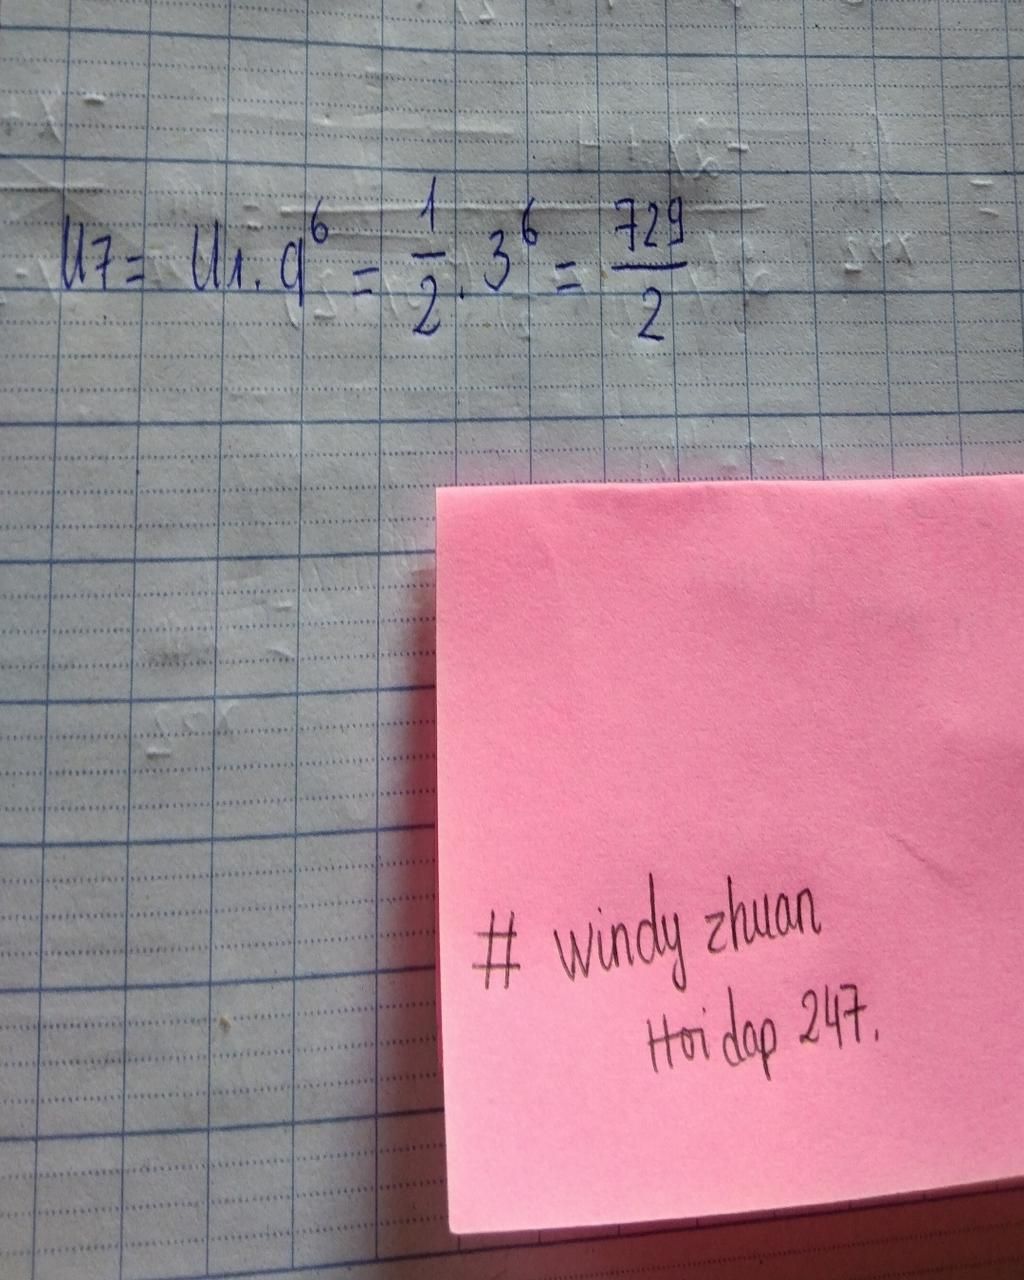 U7 = U1. q^6 = 1/2 . 3^6 = 729/2
# windy zhuan
Hoi dap 247.